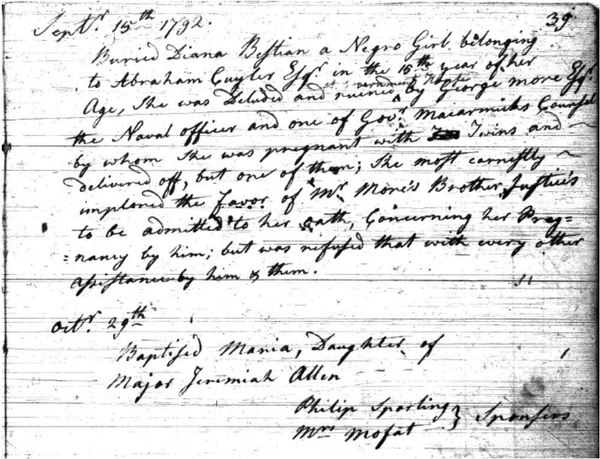 39
Septr. 15th 1792.
Buried Diana Bestian a Negro Girl belonging
to Abraham Cuyler Esqr. in the 15th year of her
Age, She was Deluded and ruined at Government House by George More Esqr.
the Naval officer and one of Govr. Macarmicks Counsel
by whom She was pregnant with Twins and
delivered off, but one of them; She most earnestly
implored the favor of Mr. More's Brother Justice's
to be admitted to her oath, Concerning her Preg=
=nancy by him; but was refused that with every other
assistance by him & them.
Octr. 29th
Baptised Maria, Daughter of
Major Jeremiah Allen
Philip Sparling } Sponsers
Mrs Mofat